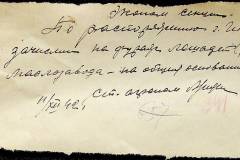 Эконом секции
По распоряжению г.
зачислить на фураж лошадей
маслозавода – на общих основан
11/XII 42 г. Ст. агроном